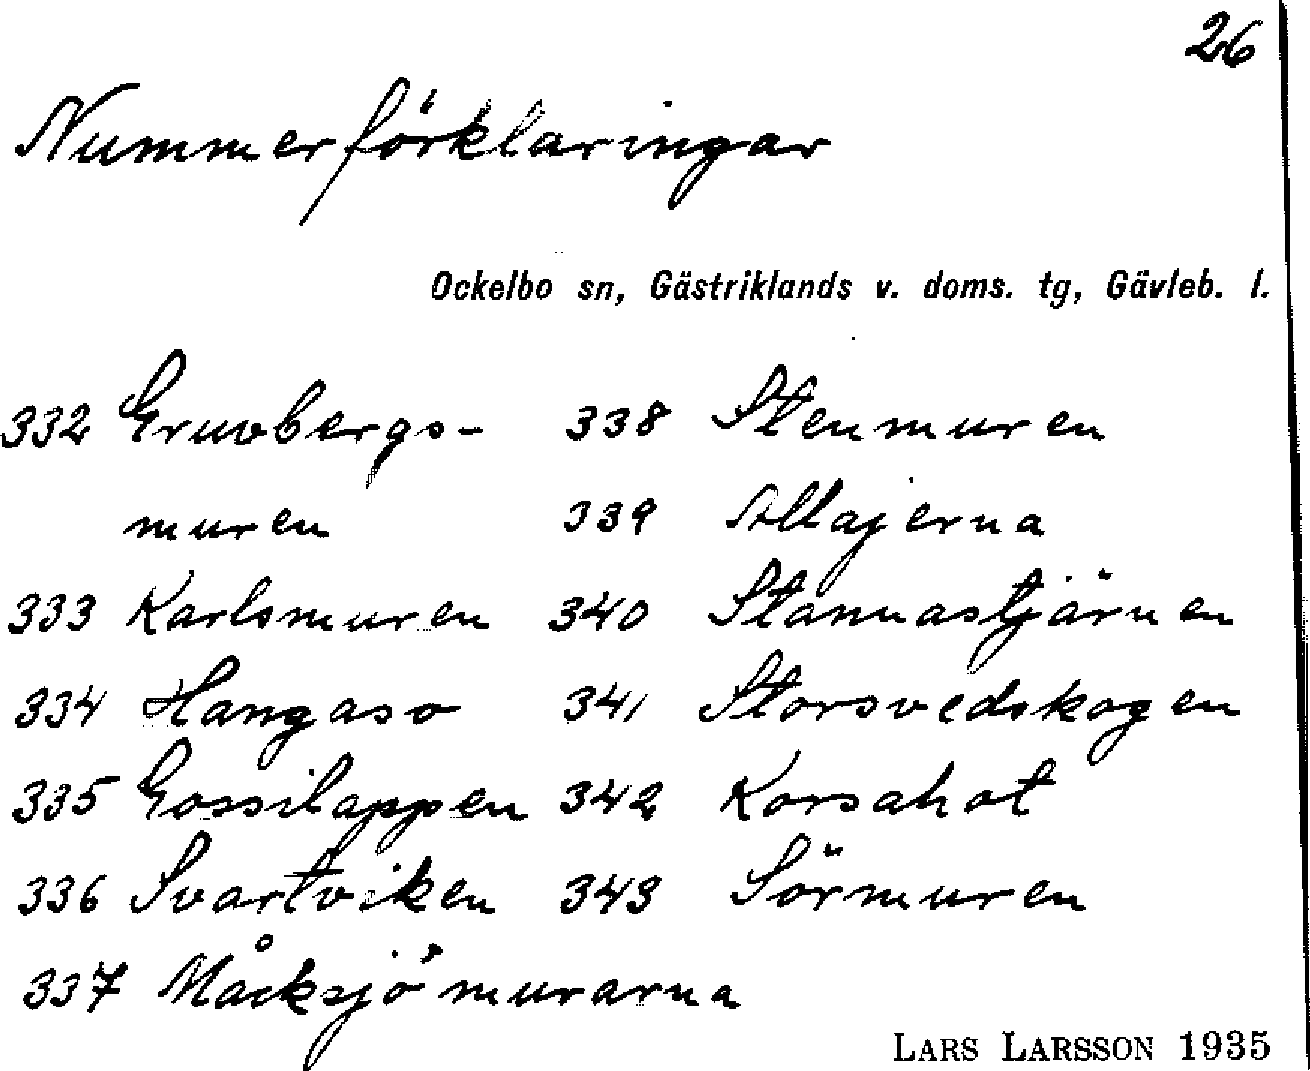 26
Nummerförklaringar
Ockelbo sn, Gästriklands v. doms. tg, Gävleb. l.
332 Gruvbergs-
muren
333 Karlsmuren
334 Hangaso
335 Gossilappen
336 Svartviken
337 Måcksjömurarna
338 Stenmuren
339
340 Stannastjärnen
341 Storsvedskogen
342 Korsahot
343 Sörmuren
LARS LARSSON 1935